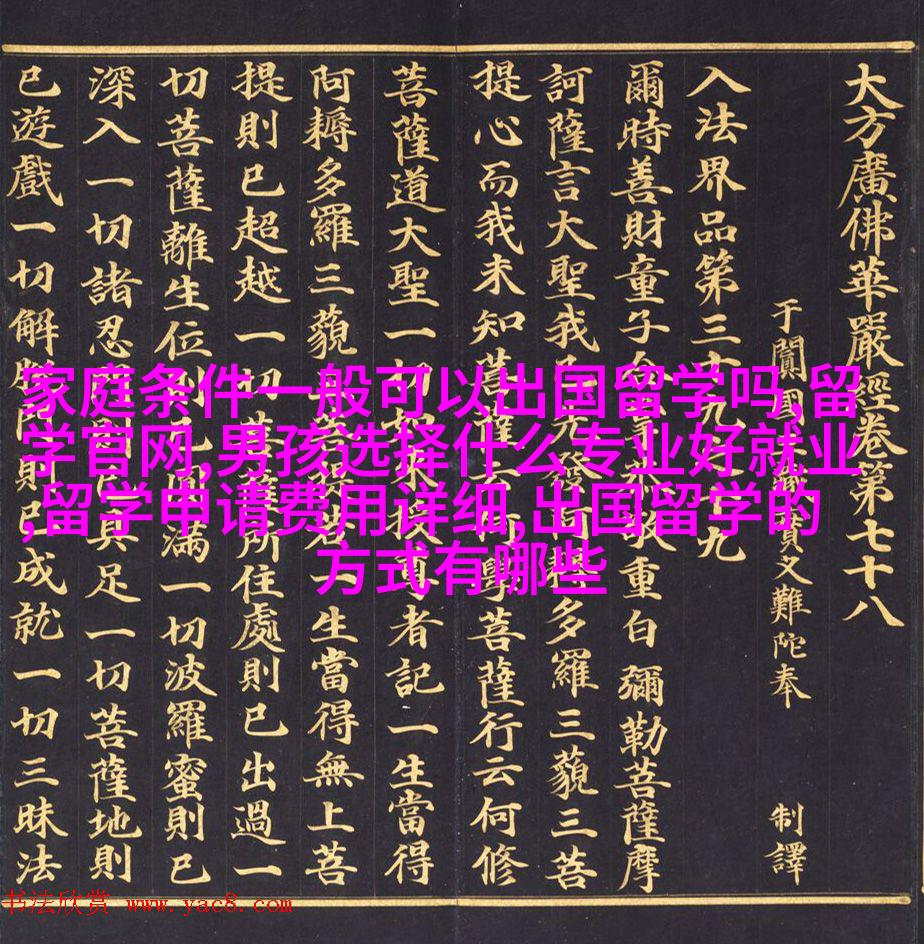 大方廣佛華嚴經卷第七十八
于闐國三藏實叉難陀奉 制譯
入法界品第三十九之十九
爾時善財童子合掌恭敬重白彌勒菩薩摩
訶薩言大聖我已先發阿耨多羅三藐三菩
提心而我未知菩薩云何學菩薩行云何修
菩薩道大聖一切如來授尊者記一生當得
阿耨多羅三藐三菩提若一生當得無上菩
提則已超越一切菩薩所住處則已出過一
切菩薩離生位則已圓滿一切波羅蜜則已
深入一切諸忍門則已具足一切菩薩地則
已遊戲一切解脫門則已成就一切三昧法
家庭条件一般可以出国留学吗,留
学官网,男孩选择什么专业好就业
,留学申请费用详细,出国留学的
方式有哪些
书法欣赏 www.yac8.com